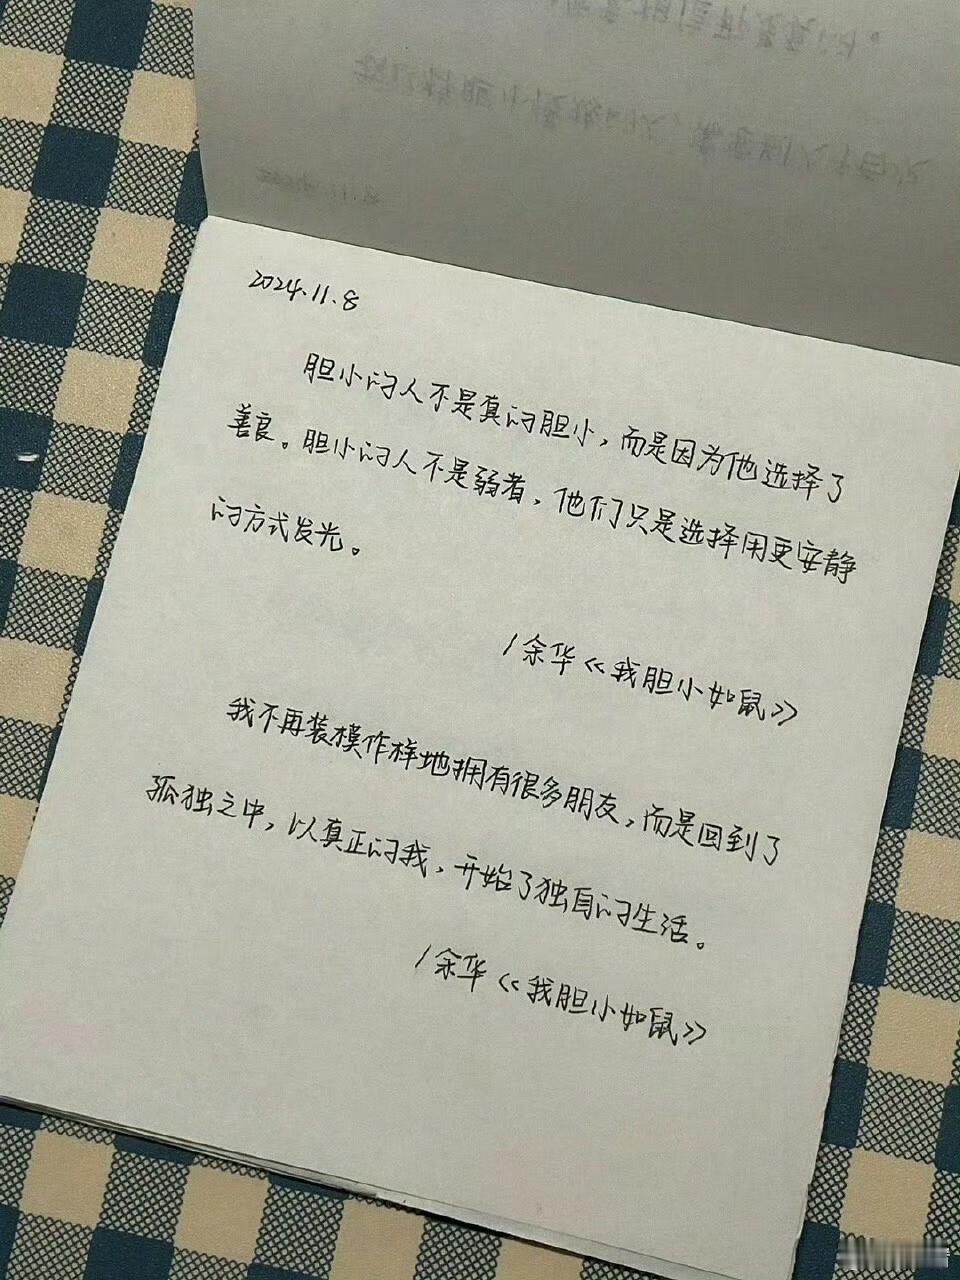 2024.11.8
胆小的人不是真的胆小，而是因为他选择了
善良。胆小的人不是弱者，他们只是选择用更安静
的方式发光。
/余华《我胆小如鼠》
我不再装模作样地拥有很多朋友，而是回到了
孤独之中，以真正的我，开始了独自的生活。
/余华《我胆小如鼠》